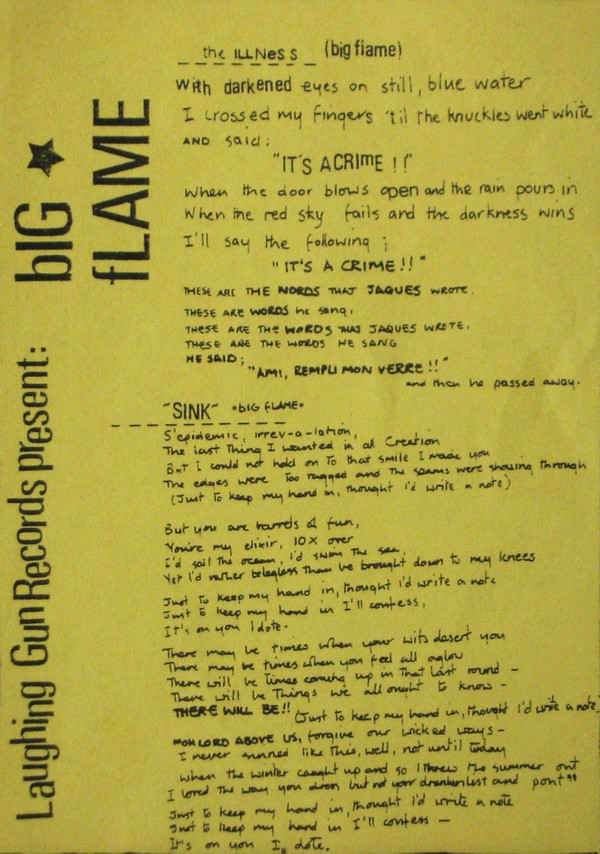 Laughing Gun Records present:
bIG ★
fLAME
the ILLNESS (big flame)
With darkened eyes on still, blue water
I crossed my fingers 'til the knuckles went white
AND said;
"IT'S A CRIME !!"
When the door blows open and the rain pours in
When the red sky fails and the darkness wins
I'll say the following ;
"IT'S A CRIME!!"
THESE ARE THE WORDS THAT JAQUES WROTE.
THESE ARE WORDS he sang,
THESE ARE THE WORDS THAT JAQUES WROTE,
THESE ARE THE WORDS HE SANG
HE SAID;
"AMI, REMPLI MON VERRE !!"
and then he passed away.
"SINK" •BIG FLAME•
S'epidemic, irrev-a-lation,
The last thing I wanted in all Creation
But I could not hold on To that smile I made you
The edges were Too ragged and the seams were showing through
(Just to keep my hand in, thought I'd write a note)
But you are barrels of fun,
You're my elixir, 10x over
I'd sail the ocean, I'd swim the sea,
Yet I'd rather be legless than be brought down to my knees
Just to keep my hand in, thought I'd write a note
Just to keep my hand in I'll confess,
It's on you I dote.
There may be times when your wits desert you
There may be times when you feel all aglow
There will be times coming up in that last round -
There will be Things we all ought to know -
THERE WILL BE!! (Just to keep my hand in, thought I'd write a note)
"OH LORD ABOVE US, forgive our wicked ways -
I never sinned like this, well, not until today
when the winter caught up and so I threw the summer out
I loved the way you dress but not your drunken list and pout"
Just to keep my hand in, thought I'd write a note
Just to keep my hand in I'll confess -
It's on you I dote.